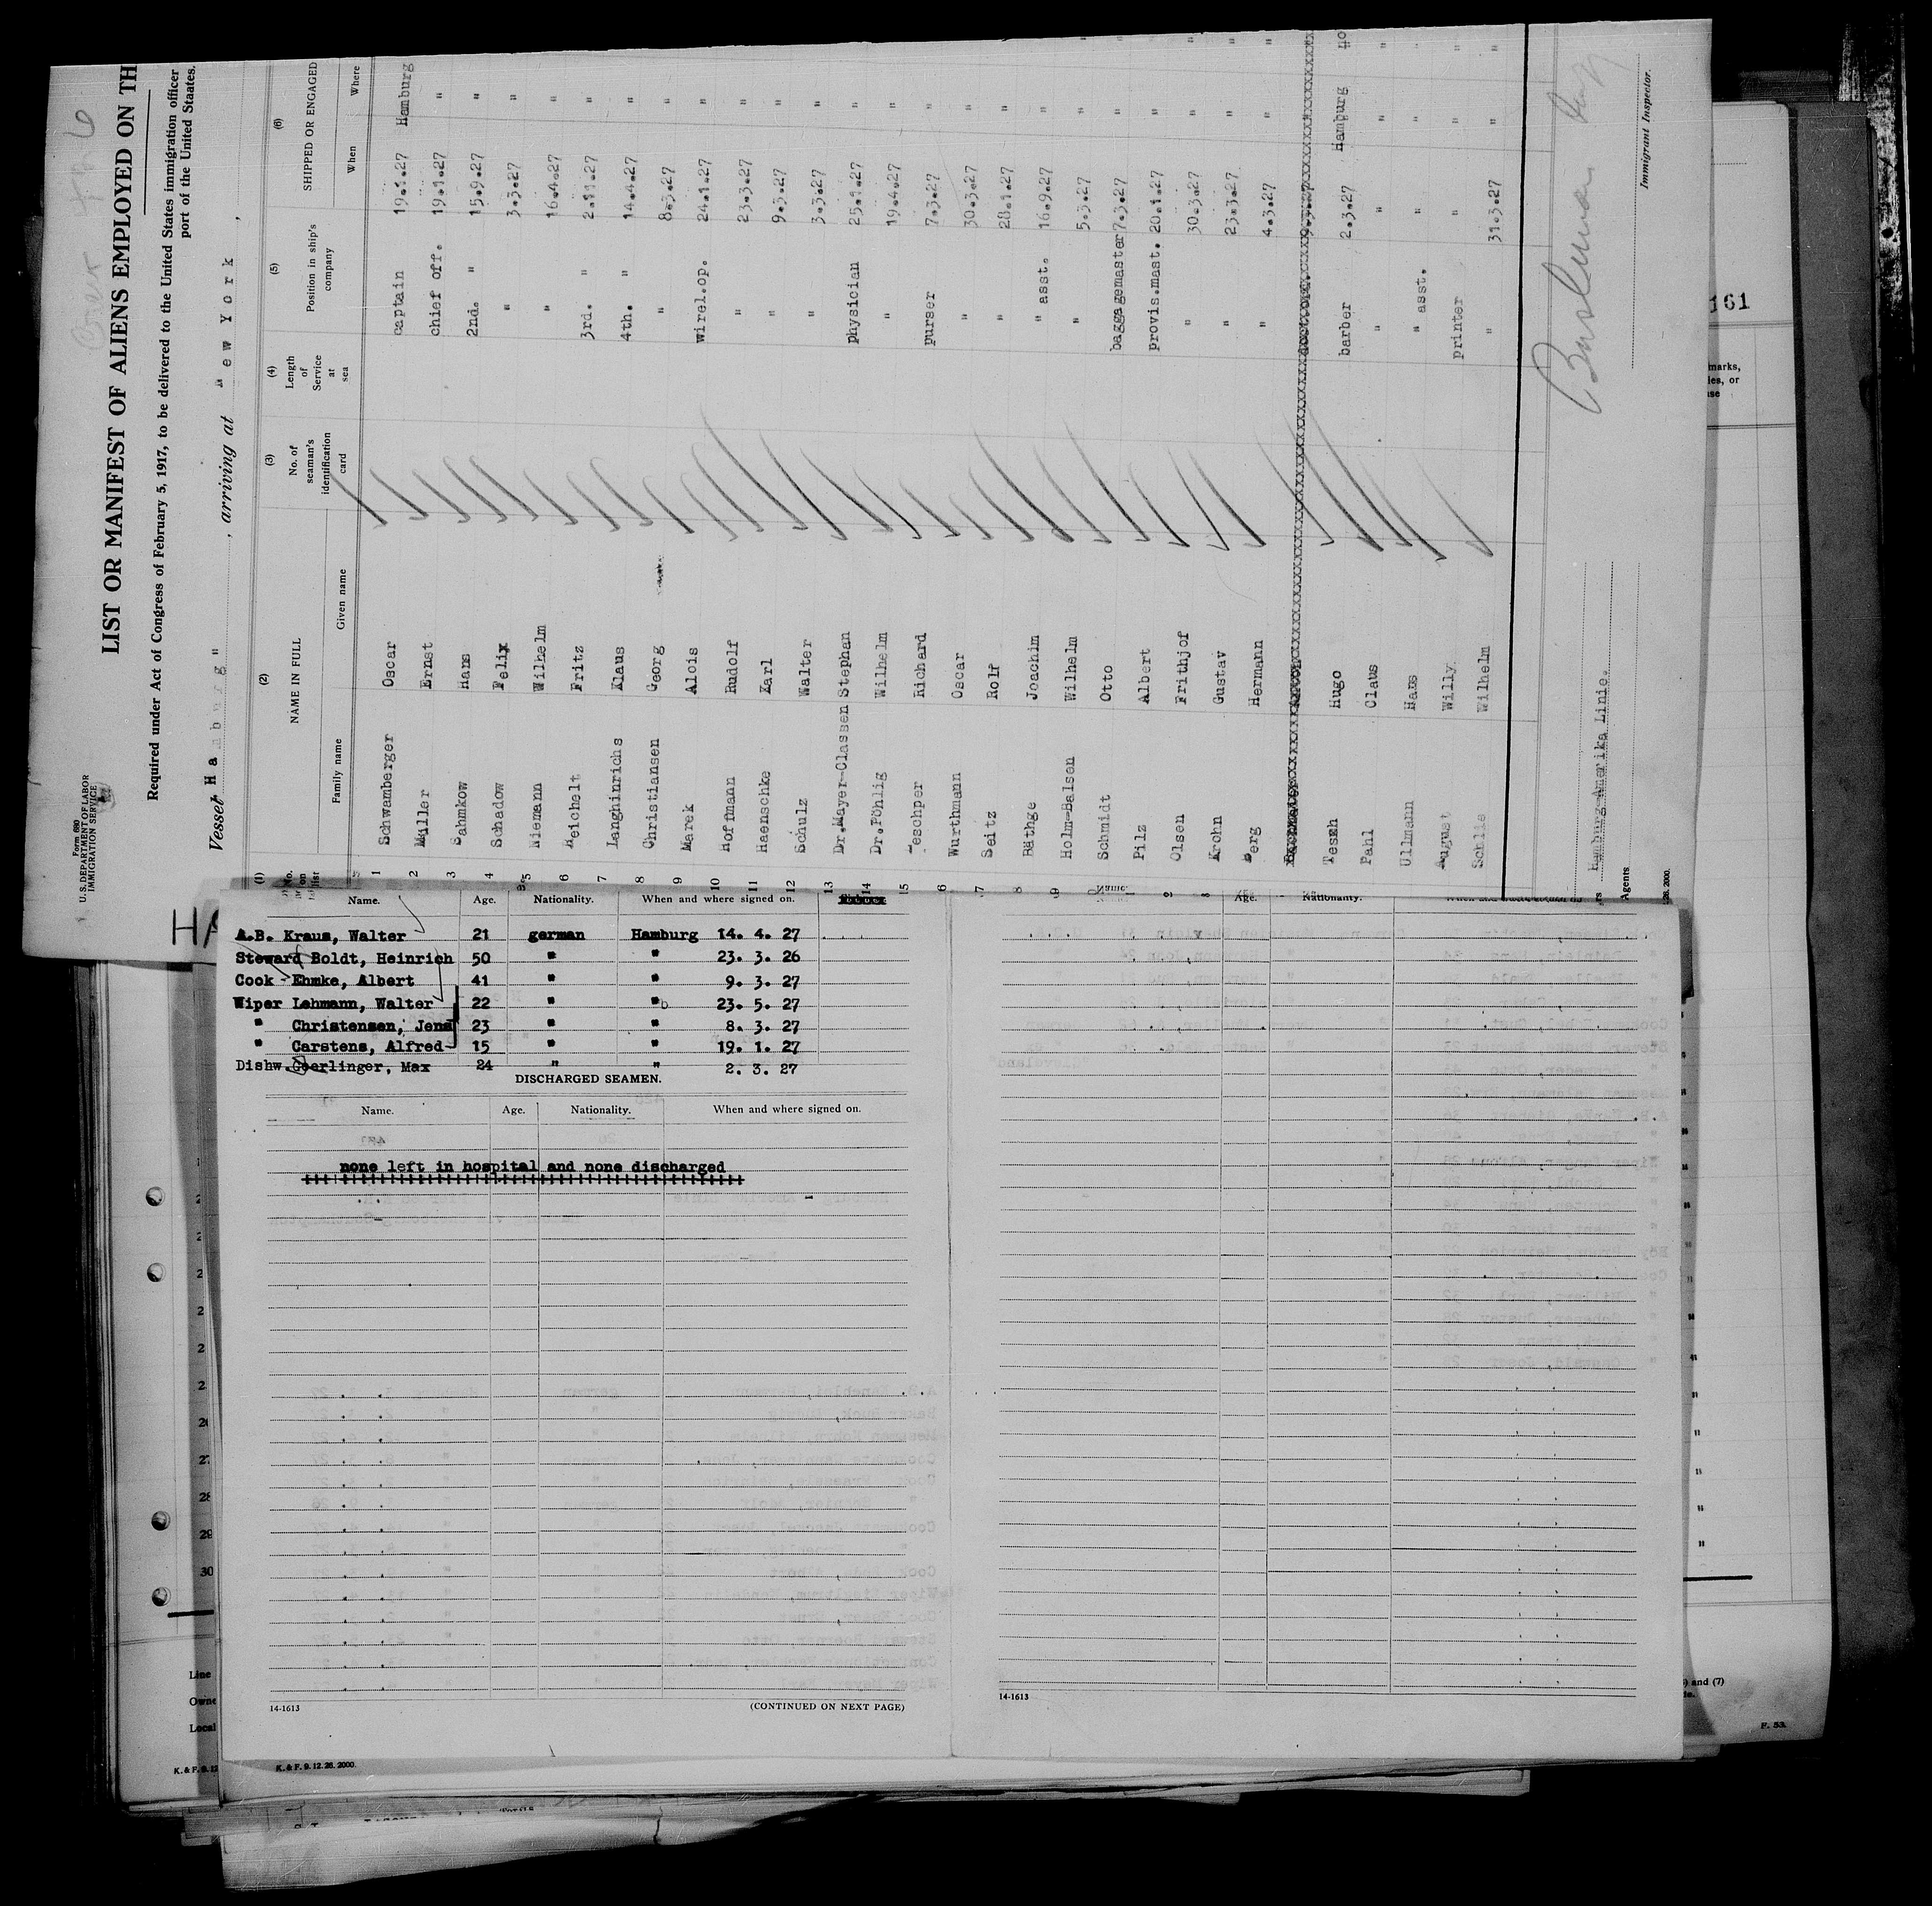 U.S. DEPARTMENT OF LABOR
IMMIGRATION SERVICE
Form 680
LIST OR MANIFEST OF ALIENS EMPLOYED ON TH
Required under Act of Congress of February 5, 1917, to be delivered to the United States immigration officer
port of the United Staates.
Vessel Hamburg" , arriving at New York ,
(1) (2) (3) (4) (5) (6)
NAME IN FULL No. of seaman's identification card Length of Service at sea Position in ship's company SHIPPED OR ENGAGED
Family name Given name When Where
1 Schwamberger Oscar captain 19.1.27 Hamburg
2 Müller Ernst chief off. 19.1.27 "
3 Sahmkow Hans 2nd. " 15.9.27 "
4 Schadow Felix " 3.3.27 "
5 Niemann Wilhelm " 16.4.27 "
6 Reichelt Fritz 3rd. " 2.11.27 "
7 Langhinrichs Klaus 4th. " 14.4.27 "
8 Christiansen Georg " 8.3.27 "
9 Marek Alois wirel.op. 24.1.27 "
10 Hoffmann Rudolf " 23.3.27 "
11 Haenschke Karl " 9.3.27 "
12 Schulz Walter " 3.3.27 "
13 Dr.Mayer-Classen Stephan physician 25.1.27 "
14 Dr.Pöhlig Wilhelm " 19.4.27 "
15 Teschper Richard purser 7.3.27 "
6 Wurthmann Oscar " 30.3.27 "
7 Seitz Rolf " 28.1.27 "
8 Bäthge Joachim " asst. 16.9.27 "
9 Holm-Balsen Wilhelm " 5.3.27 "
Schmidt Otto baggagemaster 7.3.27 "
Pilz Albert provis.mast. 20.1.27 "
2 Olsen Frithjof " 30.3.27 "
3 Krohn Gustav " 23.3.27 "
Berg Hermann " 4.3.27 "
Tesch Hugo barber 2.3.27 Hamburg 40
Pahl Claus " " "
Ullmann Hans " asst. " "
August Willy printer " "
Schlie Wilhelm " 31.3.27 "
Hamburg-Amerika Linie.
Agents
Immigrant Inspector.
161
marks,
les, or
use
HA
Name. Age. Nationality. When and where signed on.
A.B. Kraus, Walter 21 german Hamburg 14. 4. 27
Steward Boldt, Heinrich 50 " " 23. 3. 26
Cook - Ehmke, Albert 41 " " 9. 3. 27
Wiper Lehmann, Walter 22 " " 23. 5. 27
" Christensen, Jens 23 " " 8. 3. 27
" Carstens, Alfred 15 " " 19. 1. 27
Dishw. Goerlinger, Max 24 " " 2. 3. 27
DISCHARGED SEAMEN.
Name. Age. Nationality. When and where signed on.
none left in hospital and none discharged
14-1613 (CONTINUED ON NEXT PAGE)
K. & F. 9. 12. 26. 2000.
Name. Age. Nationality.
14-1613
27
28
29
30
Line
Owne
Local
K. & F. 9. 12
) and (7)
F. 53.